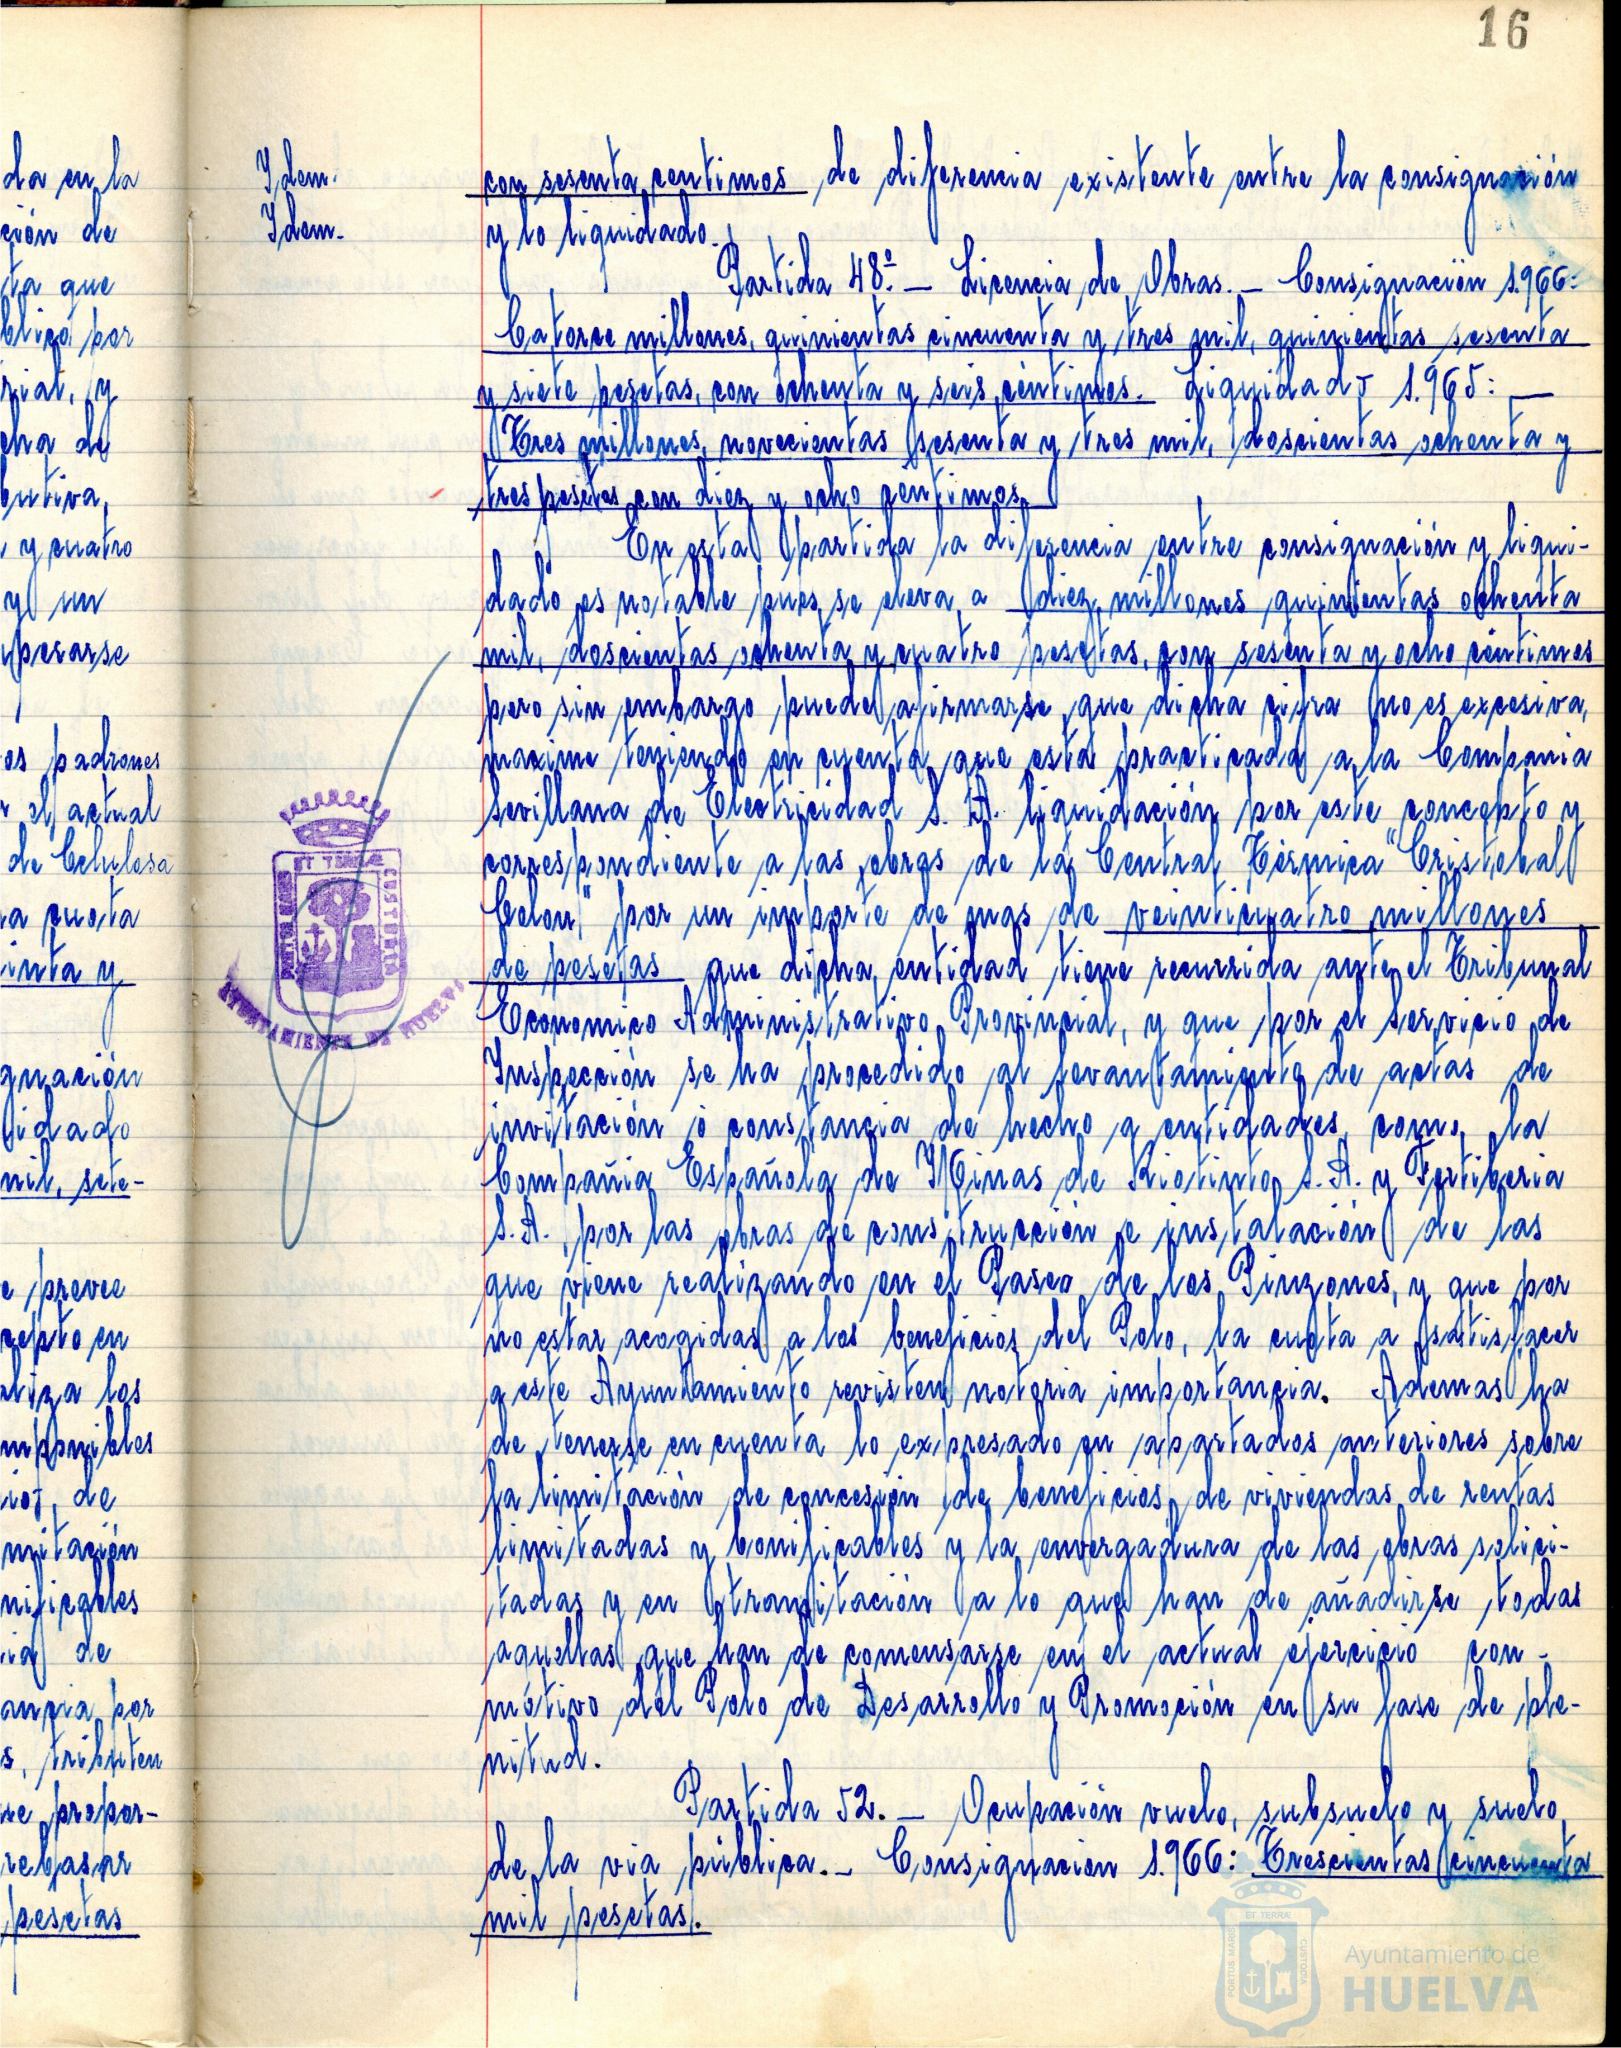 16
da en la
ción de
ta que
blico por
rial, y
cha de
butiva,
y cuatro
y un
perarse
os padrones
el actual
de Celulosa
a cuota
inta y
gnación
idado
mil, sete-
e prevee
cepto en
aliza los
imponibles
de
mitación
nificables
ia de
ancia por
s, tributen
re propor-
rebasar
pesetas
Idem.
Idem.
con sesenta centimos de diferencia existente entre la consignación
y lo liquidado.
Partida 48ª.- Licencia de Obras.- Consignación 1.966:
Catorce millones, quinientas cincuenta y tres mil, quinientas sesenta
y siete pesetas, con ochenta y seis céntimos. Liquidado 1.965: —
Tres millones, novecientas sesenta y tres mil, doscientas ochenta y
tres pesetas con diez y ocho centimos.
En esta partida la diferencia entre consignación y liqui-
dado es notable pues se eleva a diez millones quinientas ochenta
mil, doscientas ochenta y cuatro pesetas, con sesenta y ocho céntimos
pero sin embargo puede afirmarse que dicha cifra no es excesiva,
maxime teniendo en cuenta que está practicada a la Compania
Sevillana de Electricidad S. A. liquidación por este concepto y
correspondiente a las obras de la Central Térmica "Cristobal
Colon," por un importe de mas de veinticuatro millones
de pesetas que dicha entidad tiene recurrida ante el Tribunal
Economico Administrativo Provincial, y que por el Servicio de
Inspección se ha procedido al levantamiento de actas de
invitación ó constancia de hecho a entidades como la
Compañia Española de Minas de Riotinto S. A. y Fertiberia
S. A., por las obras de construcción e instalación de las
que viene realizando en el Paseo de los Pinzones, y que por
no estar acogidas a los beneficios del Polo, la cuota a satisfacer
a este Ayuntamiento revisten notoria importancia. Ademas ha
de tenerse en cuenta lo expresado en apartados anteriores sobre
la limitación de concesión de beneficios de viviendas de rentas
limitadas y bonificables y la envergadura de las obras solici-
tadas y en tramitación a lo que han de añadirse todas
aquellas que han de comensarse en el actual ejercicio con-
motivo del Polo de Desarrollo y Promoción en su fase de ple-
nitud.
Partida 52.- Ocupación vuelo, subsuelo y suelo
de la via pública.- Consignación 1.966: Trescientas cincuenta
mil pesetas.
ET TERRÆ
PORTUS MARIS
CUSTODIA
AYUNTAMIENTO DE HUELVA
ET TERRÆ
PORTUS MARIS
CUSTODIA
Ayuntamiento de
HUELVA